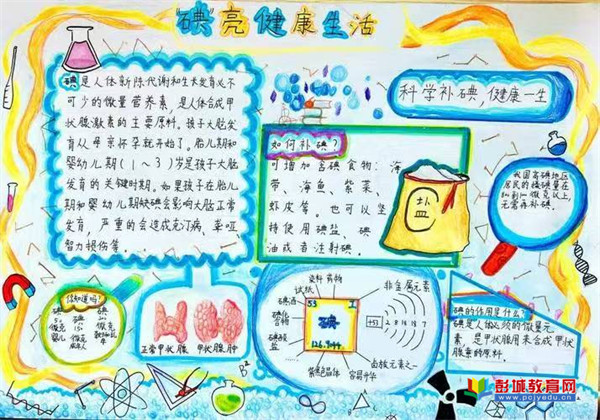 "碘"亮健康生活
碘是人体新陈代谢和生长发育必不
可少的微量营养素,是人体合成甲
状腺激素的主要原料。孩子大脑发
育从母亲怀孕就开始了。胎儿期和
婴幼儿期(1~3)岁是孩子大脑
发育的关键时期。如果孩子在胎儿
期和婴幼儿期缺碘会影响大脑正常
发育,严重的会造成克汀病、聋哑
智力损伤等。
科学补碘,健康一生
如何补碘?
可增加含碘食物:海
带、海鱼、紫菜
虾皮等。也可以坚
持使用碘盐、碘
油或者注射碘。
盐
我国高碘地区
居民的
无需再补碘。
你知道吗?
正常甲状腺
甲状腺肿
染料药物
试纸
碘酒
碘化合物
碘酸盐
53
I
碘
126.944
非金属元素
+53
2 8 18 18 7
卤族元素之一
紫黑色晶体
容易升华
碘的作用是什么?
碘是人体必须的微量元
素,是甲状腺用来合成甲状
腺素的原料
彭城教育网
www.pcjyedu.cn